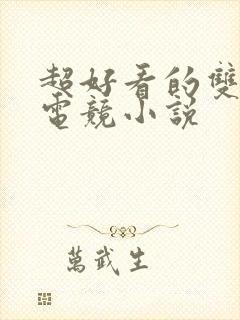 超好看的雙
電競小說
萬武生